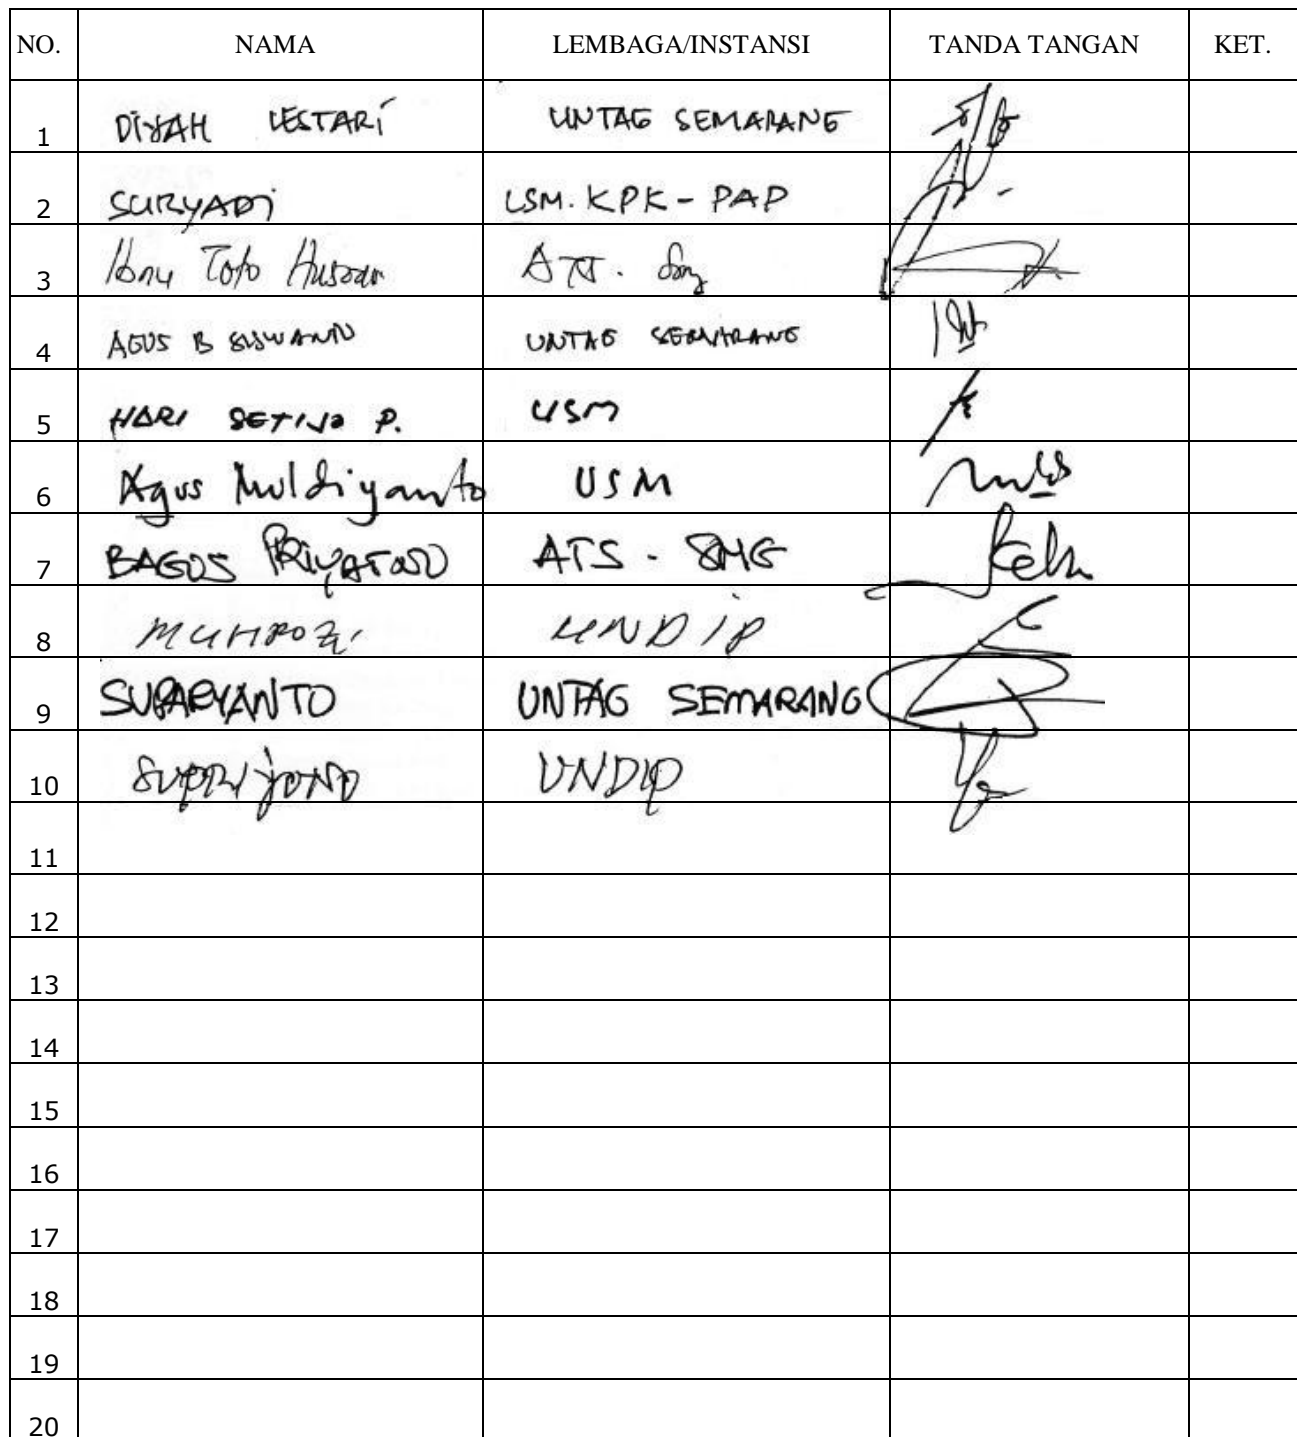 NO. NAMA LEMBAGA/INSTANSI TANDA TANGAN KET.
1 DIYAH LESTARI UNTAG SEMARANG
2 SURYADI LSM. KPK - PAP
3 Toto
4 AGUS B SISWANTO UNTAG SEMARANG
5 HARI SETIJO P. USM
6 Agus Muldiyanto USM
7 BAGUS ATS - SMG
8 MUHROZI UNDIP
9 SUPARYANTO UNTAG SEMARANG
10 SUPRIJONO UNDIP
11
12
13
14
15
16
17
18
19
20